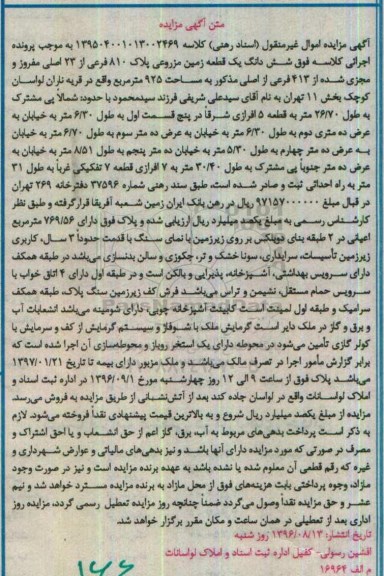 متن آگهی مزایده
آگهی مزایده اموال غیرمنقول (اسناد رهنی) کلاسه ۱۳۹۵۰۴۰۰۱۰۱۳۰۰۲۴۶۹ به موجب پرونده
اجرائی کلاسه فوق شش دانگ یک قطعه زمین مزروعی پلاک ۸۱۰ فرعی از ۲۳ اصلی مفروز و
مجزی شده از ۴۱۳ فرعی از اصلی مذکور به مساحت ۹۲۵ مترمربع واقع در قریه ناران لواسان
کوچک بخش ۱۱ تهران به نام آقای سیدعلی شریفی فرزند سیدمحمود با حدود: شمالاً پی مشترک
به طول ۲۶/۷۰ متر به قطعه ۵ افرازی شرقاً در پنج قسمت اول به طول ۶/۳۰ متر به خیابان به
عرض ده متری دوم به طول ۶/۳۰ متر به خیابان به عرض ده متر سوم به طول ۶/۷۰ متر به خیابان
به عرض ده متر چهارم به طول ۵/۳۰ متر به خیابان ده متر پنجم به طول ۸/۵۱ متر به خیابان به
عرض ده متر جنوباً پی مشترک به طول ۳۰/۴۰ متر به ۷ افرازی قطعه ۷ تفکیکی غرباً به طول ۳۱
متر به راه احداثی ثبت و صادر شده است، طبق سند رهنی شماره ۳۷۵۹۶ دفترخانه ۲۶۹ تهران
در قبال مبلغ ۹۷۱۵۷۰۰۰۰۰۰ ریال در رهن بانک ایران زمین شعبه آفریقا قرارگرفته و طبق نظر
کارشناس رسمی به مبلغ یکصد میلیارد ریال ارزیابی شده و پلاک فوق دارای ۷۶۹/۵۶ مترمربع
اعیانی در ۲ طبقه بنای دوبلکس بر روی زیرزمین با نمای سنگ با قدمت حدوداً ۳ سال، کاربری
زیرزمین تأسیسات، سرایداری، سونا خشک و تر، جکوزی و سالن بدنسازی می‌باشد در طبقه همکف
دارای سرویس بهداشتی، آشپزخانه، پذیرایی و بالکن است و در طبقه اول دارای ۴ اتاق خواب با
سرویس حمام مستقل، نشیمن و تراس می‌باشد فرش کف زیرزمین سنگ پلاک، طبقه همکف
سرامیک و طبقه اول لمینت است کابینت آشپزخانه چوبی، دارای شومینه می‌باشد انشعابات آب
و برق و گاز در ملک دایر است گرمایش ملک با شوفاژ و سیستم گرمایش از کف و سرمایش با
کولر گازی تأمین می‌شود در محوطه دارای یک استخر روباز و محوطه‌سازی آن اجرا شده است که
برابر گزارش مأمور اجرا در تصرف مالک می‌باشد و ملک مزبور دارای بیمه تا تاریخ ۱۳۹۷/۰۱/۲۱
می‌باشد پلاک فوق از ساعت ۹ الی ۱۲ روز چهارشنبه مورخ ۱۳۹۶/۰۹/۱ در اداره ثبت اسناد و
املاک لواسانات واقع در لواسان جاده کند بعد از آتش‌نشانی از طریق مزایده به فروش می‌رسد.
مزایده از مبلغ یکصد میلیارد ریال شروع و به بالاترین قیمت پیشنهادی نقداً فروخته می‌شود. لازم
به ذکر است پرداخت بدهی‌های مربوط به آب، برق، گاز اعم از حق انشعاب و یا حق اشتراک و
مصرف در صورتی که مورد مزایده دارای آنها باشد و نیز بدهی‌های مالیاتی و عوارض شهرداری و
غیره که رقم قطعی آن معلوم شده یا نشده باشد به عهده برنده مزایده است و نیز در صورت وجود
مازاد، وجوه پرداختی بابت هزینه‌های فوق از محل مازاد به برنده مزایده مسترد خواهد شد و نیم
عشر و حق مزایده نقداً وصول می‌گردد ضمناً چنانچه روز مزایده تعطیل رسمی گردد، مزایده روز
اداری بعد از تعطیلی در همان ساعت و مکان مقرر برگزار خواهد شد.
تاریخ انتشار: ۱۳۹۶/۰۸/۱۳ روز شنبه
افشین رسولی- کفیل اداره ثبت اسناد و املاک لواسانات
م الف ۱۶۹۶۴